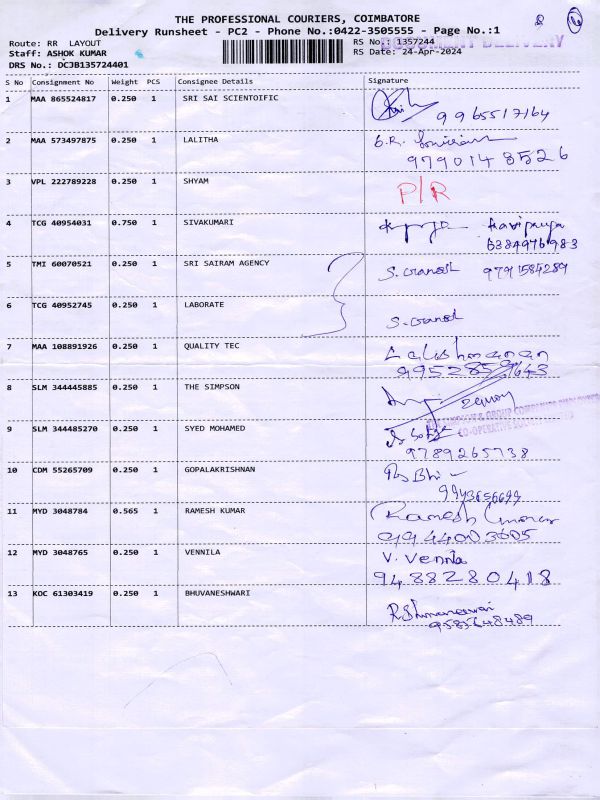 THE PROFESSIONAL COURIERS, COIMBATORE
Delivery Runsheet - PC2 - Phone No.:0422-3505555 - Page No.:1
Route: RR LAYOUT RS No.: 1357244
Staff: ASHOK KUMAR RS Date: 24-Apr-2024
DRS No.: DCJB135724401
S No Consignment No Weight PCS Consignee Details Signature
1 MAA 865524817 0.250 1 SRI SAI SCIENTOIFIC 9965517164
2 MAA 573497875 0.250 1 LALITHA
9790148526
3 VPL 222789228 0.250 1 SHYAM P/R
4 TCG 40954031 0.750 1 SIVAKUMARI
6384976983
5 TMI 60070521 0.250 1 SRI SAIRAM AGENCY S. Ganesh 9791584289
6 TCG 40952745 0.250 1 LABORATE S. Ganesh
7 MAA 108891926 0.250 1 QUALITY TEC
8 SLM 344445885 0.250 1 THE SIMPSON
9 SLM 344485270 0.250 1 SYED MOHAMED
9789265738
10 CDM 55265709 0.250 1 GOPALAKRISHNAN
11 MYD 3048784 0.565 1 RAMESH KUMAR Ramesh Kumar
9944003605
12 MYD 3048765 0.250 1 VENNILA V. Vennila
9488280418
13 KOC 61303419 0.250 1 BHUVANESHWARI
9585648489